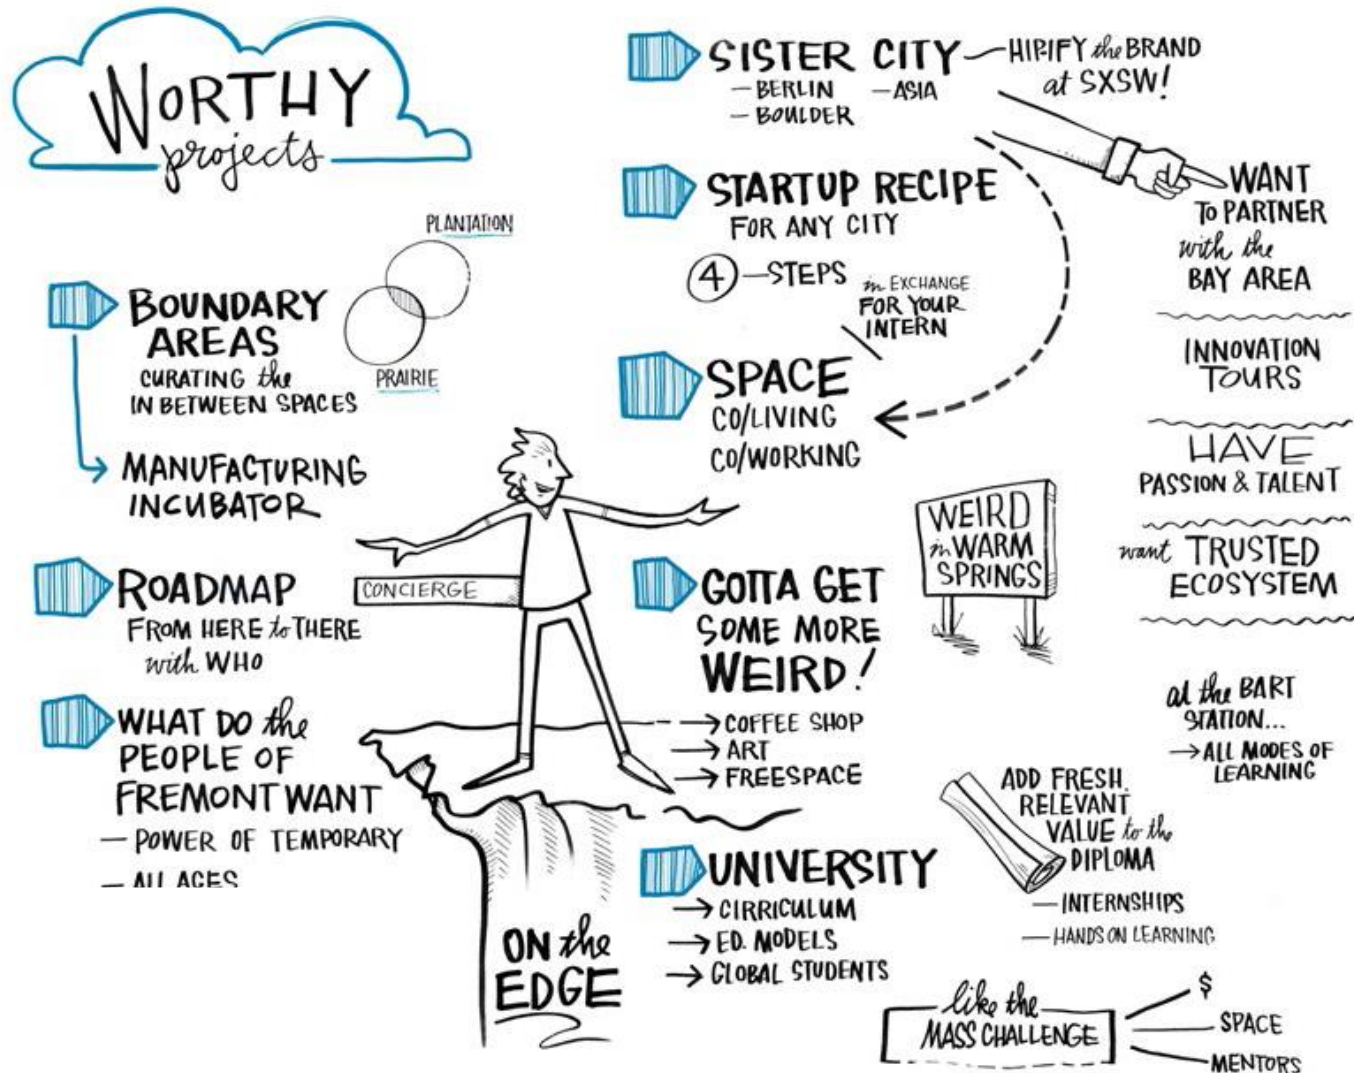 WORTHY
projects
PLANTATION
PRAIRIE
BOUNDARY
AREAS
CURATING the
IN BETWEEN SPACES
MANUFACTURING
INCUBATOR
ROADMAP
FROM HERE to THERE
with WHO
WHAT DO the
PEOPLE OF
FREMONT WANT
— POWER OF TEMPORARY
— ALL AGES
CONCIERGE
ON the
EDGE
SISTER CITY
— BERLIN
— ASIA
— BOULDER
HIPIFY the BRAND
at SXSW!
STARTUP RECIPE
FOR ANY CITY
4 — STEPS
in EXCHANGE
FOR YOUR
INTERN
SPACE
CO/LIVING
CO/WORKING
GOTTA GET
SOME MORE
WEIRD!
→ COFFEE SHOP
→ ART
→ FREESPACE
WEIRD
in WARM
SPRINGS
UNIVERSITY
→ CIRRICULUM
→ ED. MODELS
→ GLOBAL STUDENTS
WANT
TO PARTNER
with the
BAY AREA
INNOVATION
TOURS
HAVE
PASSION & TALENT
want TRUSTED
ECOSYSTEM
at the BART
STATION...
→ ALL MODES OF
LEARNING
ADD FRESH
RELEVANT
VALUE to the
DIPLOMA
— INTERNSHIPS
— HANDS ON LEARNING
like the
MASS CHALLENGE
$
SPACE
MENTORS